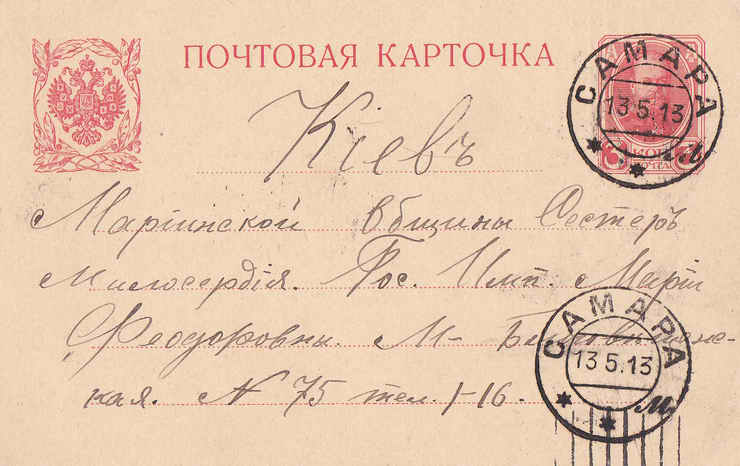 ПОЧТОВАЯ КАРТОЧКА
САМАРА
13.5.13
Кіевъ
Маріинской Общины Сестеръ
Милосердія. Гос. Имп. Маріи
Феодоровны. М-
ская. N 75 тел. 1-16.
САМАРА
13 5.13